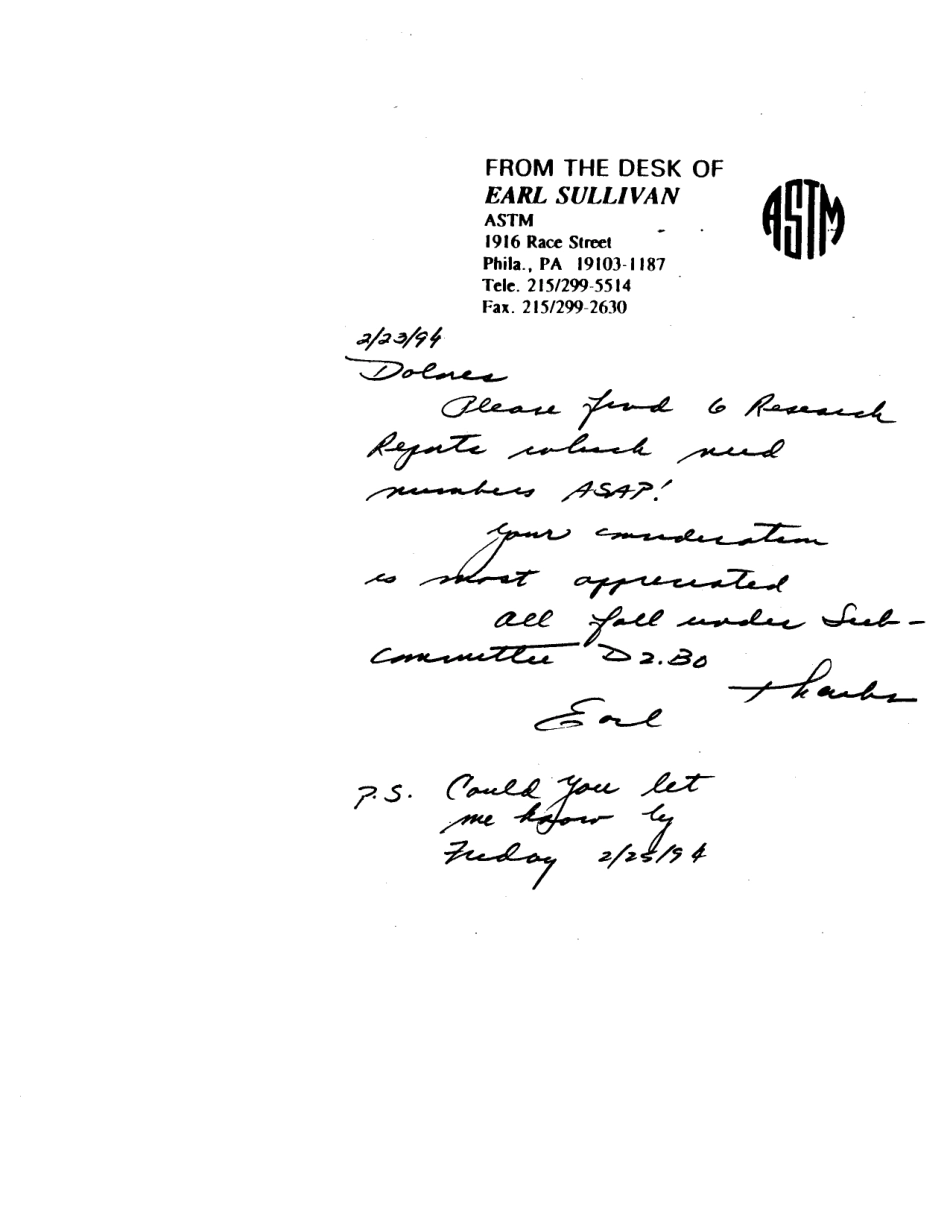 FROM THE DESK OF
EARL SULLIVAN
ASTM
1916 Race Street
Phila., PA 19103-1187
Tele. 215/299-5514
Fax. 215/299-2630
ASTM
2/23/94
Dolores
Please find 6 Research
Reports which need
numbers ASAP!
Your consideration
is most appreciated
all fall under Sub-
committee D2.B0
Thanks
Earl
P.S. Could you let
me know by
Friday 2/25/94